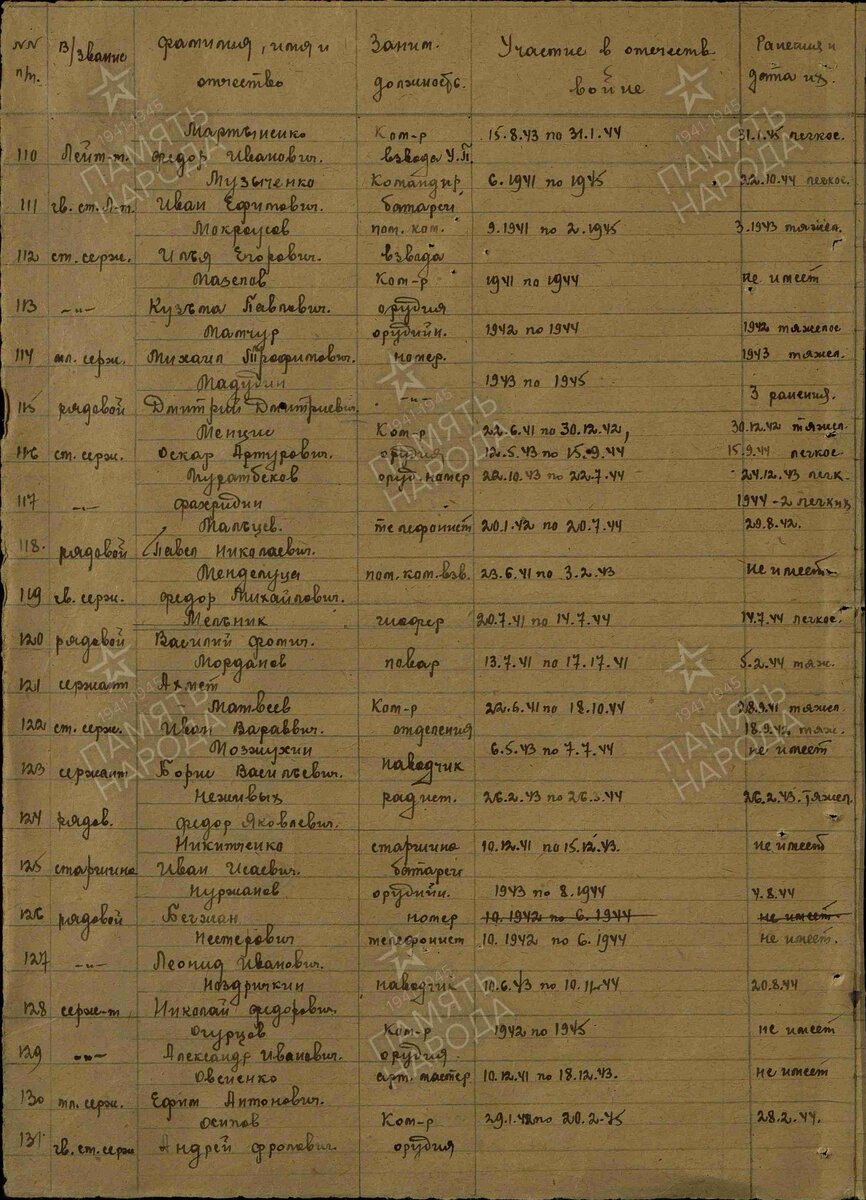 NN В/звание фамилия, имя и Заним. Участие в отечеств Ранения и
п/п. отчество должность. войне дата их.
Мартыненко Ком-р 15.8.43 по 31.1.44 31.1.45 легкое.
110 Лейт-т. федор Иванович. взвода У.П.
Музыченко Командир 6.1941 по 1945 22.10.44 легкое.
111 гв. ст. Л-т. Иван Ефимович. батареи
Мокроусов пом. ком. 9.1941 по 2.1945 3.1943 тяжел.
112 ст. серж. Илья Егорович. взвода
Мазепов Ком-р 1941 по 1944 не имеет
113 -"- Кузьма Павлович. орудия
Мамчур орудийн. 1942 по 1944 1942 тяжелое
114 мл. серж. Михаил Трофимович. номер. 1943 тяжел.
Мадудин -"- 1943 по 1945 3 ранения.
115 рядовой Дмитрий Дмитриевич.
Менцис Ком-р 22.6.41 по 30.12.42, 30.12.42 тяжел.
116 ст. серж. Оскар Артурович. орудия 12.5.43 по 15.9.44 15.9.44 легкое.
Муратбеков оруд. номер 22.10.43 по 22.7.44 24.12.43 легк.
117 -"- фахридин 1944-2 легких
Мальцев. телефонист 20.1.42 по 20.7.44 29.8.42.
118. рядовой Павел Николаевич.
Менделуца пом. ком. взв. 23.6.41 по 3.2.43 не имеет
119 гв. серж. федор Михайлович.
Мельник шофер 20.7.41 по 14.7.44 14.7.44 легкое.
120 рядовой Василий фомич.
Морданов повар 13.7.41 по 17.17.41 5.2.44 тяж.
121 сержант Ахмет
Матвеев Ком-р 22.6.41 по 18.10.44 28.9.41 тяжел.
122 ст. серж. Иван Вараввич. отделения 18.9.42 тяж.
Мозжухин наводчик 6.5.43 по 7.7.44 не имеет
123 сержант Борис Васильевич.
Неживых радист. 26.2.43 по 26.3.44 26.2.43. тяжел.
124 рядов. федор Яковлевич.
Никитченко старшина 10.12.41 по 15.12.43. не имеет
125 старшина Иван Исаевич. батареи
Нуржанов орудийн. 1943 по 8.1944 4.8.44
126 рядовой Бегжан номер 10.1942 по 6.1944 не имеет
Нестерович телефонист 10.1942 по 6.1944 не имеет.
127 -"- Леонид Иванович.
Ноздричкин наводчик 10.6.43 по 10.11.44 20.8.44
128 серж-т Николай федорович.
Огурцов Ком-р 1942 по 1945 не имеет
129 -"- Александр Иванович. орудия
Овсиенко арт. мастер 10.12.41 по 18.12.43. не имеет
130 мл. серж. Ефим Антонович.
Осипов Ком-р 29.1.42 по 20.2.45 28.2.44.
131 гв. ст. серж Андрей фролович. орудия
1941-1945
ПАМЯТЬ
НАРОДА
1941-1945
ПАМЯТЬ
НАРОДА
1941-1945
ПАМЯТЬ
НАРОДА
1941-1945
ПАМЯТЬ
НАРОДА
1941-1945
ПАМЯТЬ
НАРОДА
1941-1945
ПАМЯТЬ
НАРОДА